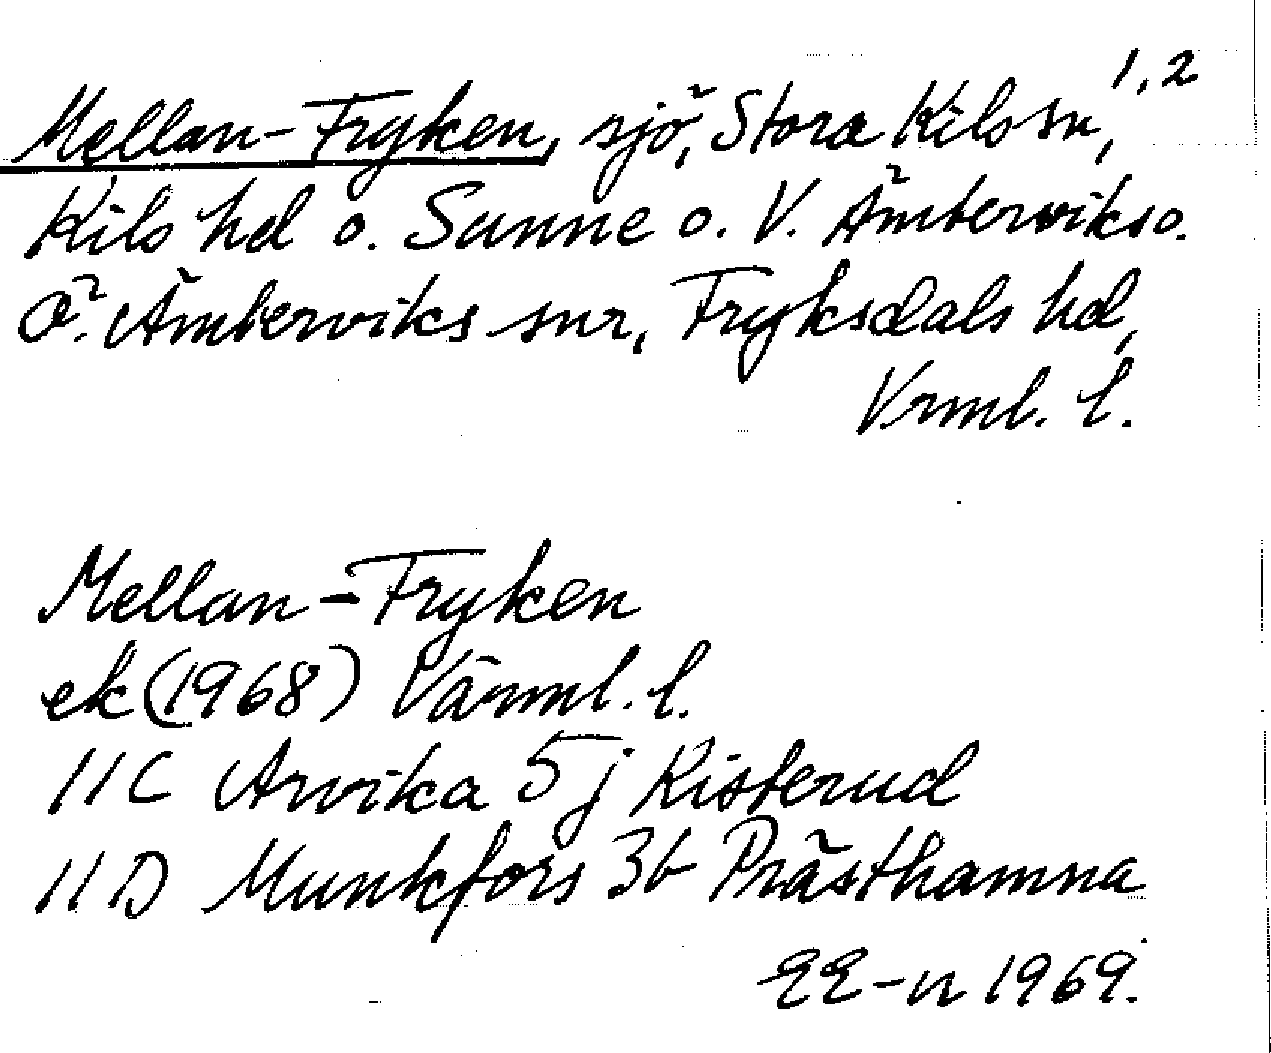 Mellan-Fryken, sjö, Stora Kils sn, 1,2
Kils hd o. Sunne o. V. Ämterviks o.
Ö. Ämterviks snr, Fryksdals hd,
Vrml. l.
Mellan-Fryken
ek (1968) Värml. l.
11C Arvika 5j Risterud
11D Munkfors 3b Prästhamna
EE-n 1969.